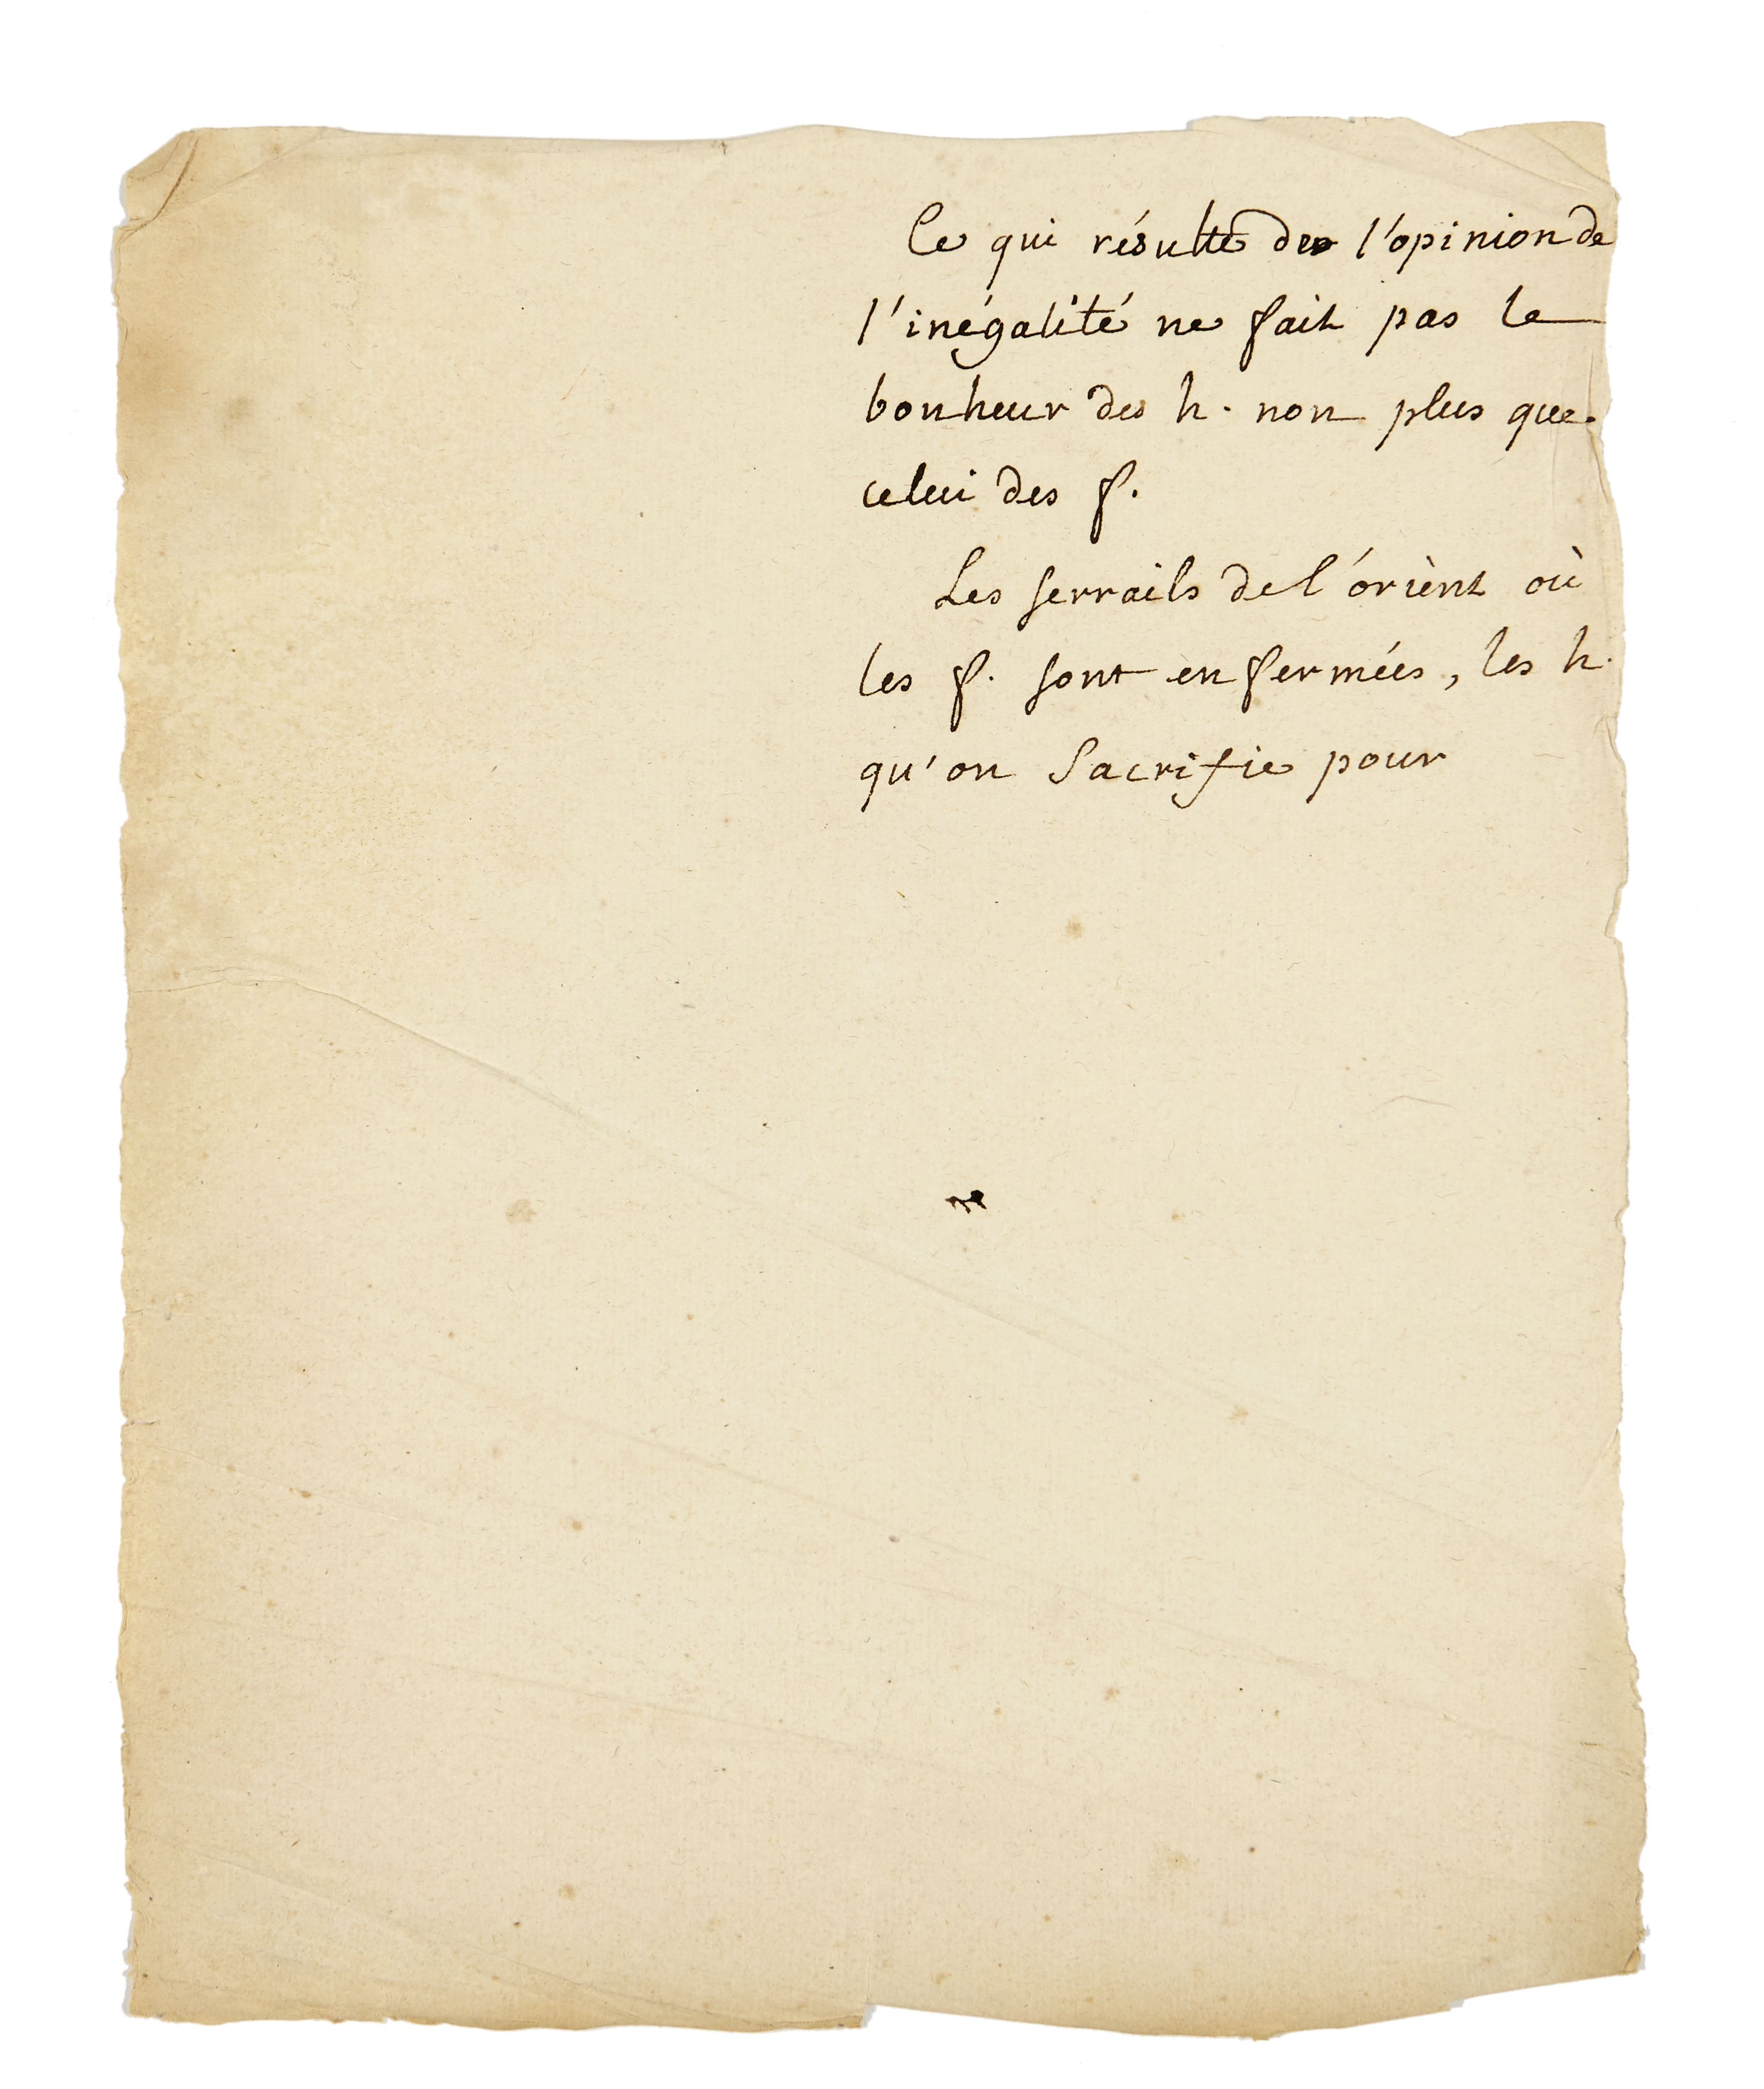 Ce qui résulte de l'opinion de
l'inégalité ne fait pas le
bonheur des h. non plus que
celui des f.
Les serrails de l'órient où
les f. sont enfermées, les h.
qu'on Sacrifie pour